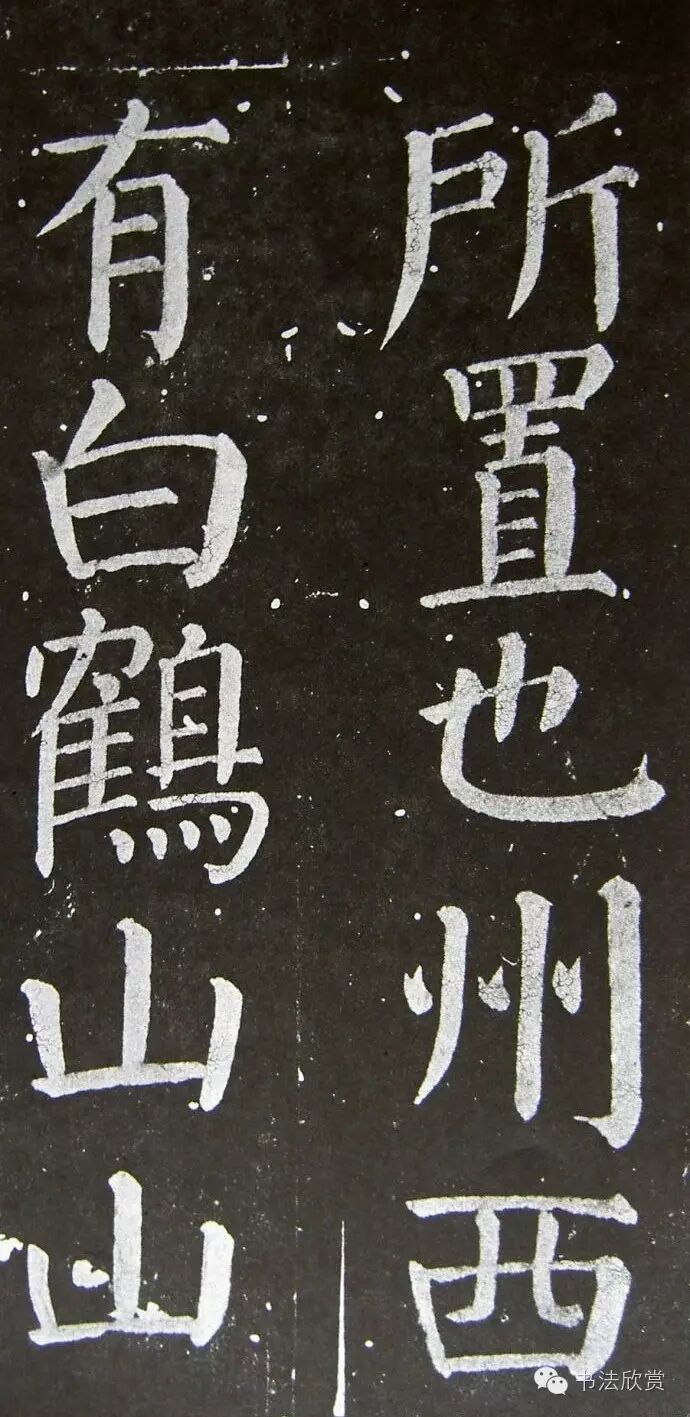 所置也州西
有白鶴山山
书法欣赏